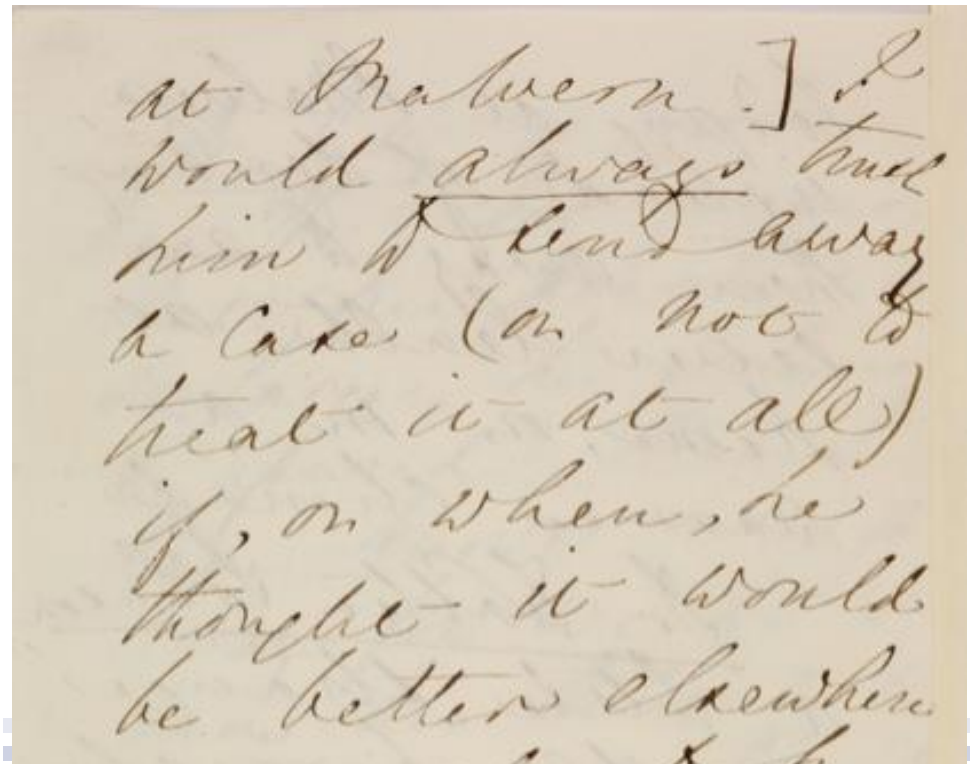 at Malvern.] I
would always trust
him to send away
a case (or not to
treat it at all)
if, or when, he
thought it would
be better elsewhere